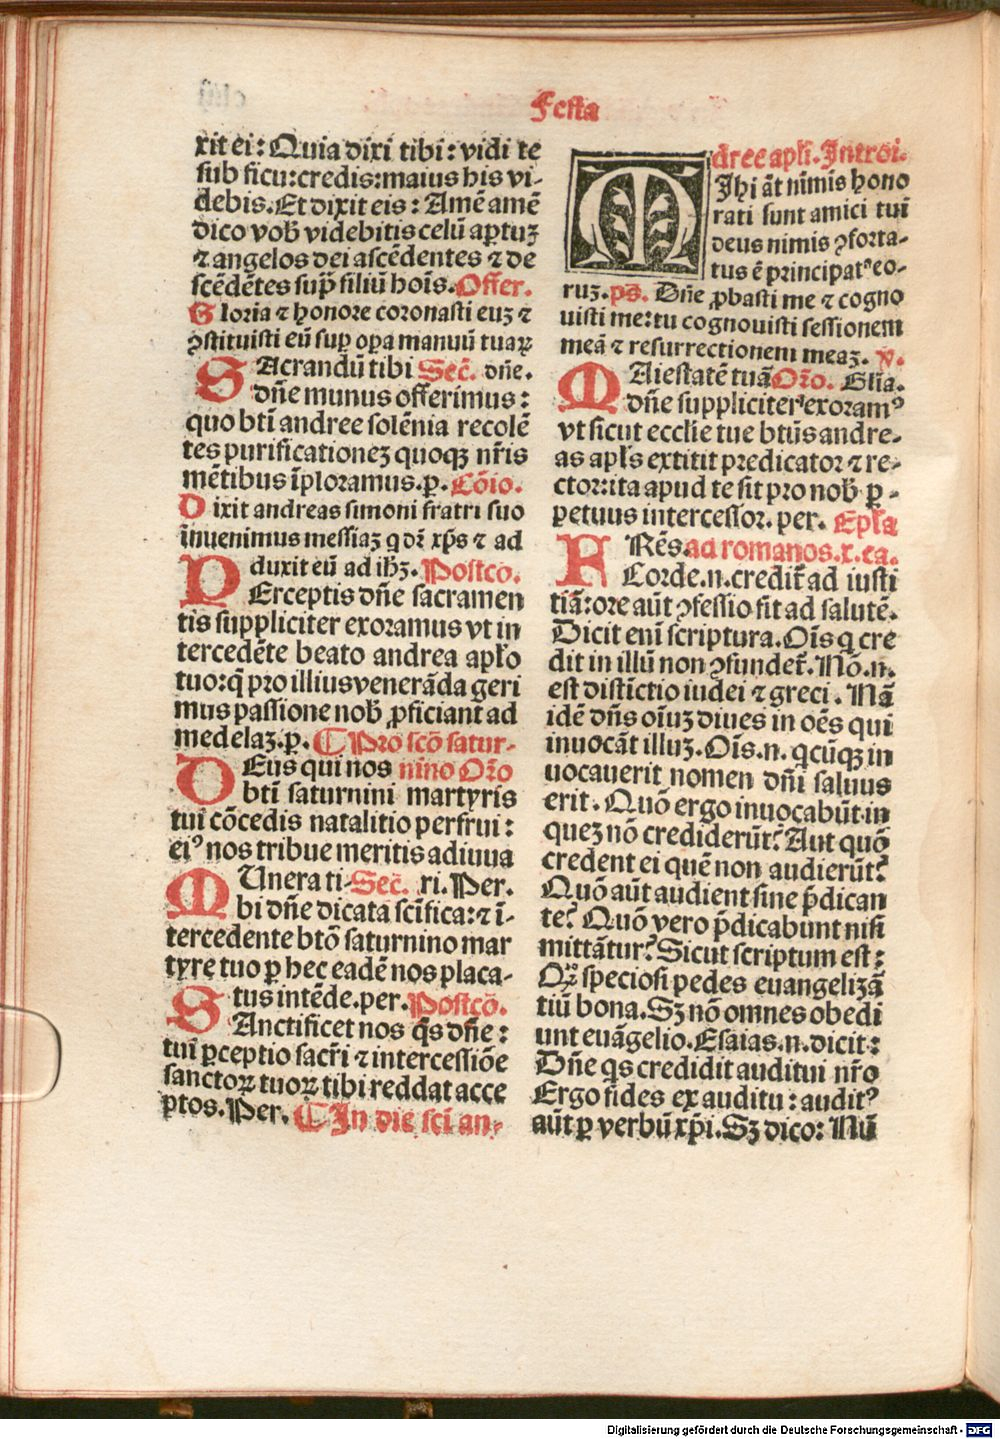 Festa
xit ei: Quia dixi tibi: vidi te
sub ficu: credis: maius his vi-
debis. Et dixit eis: Amē amē
dico vob̄ videbitis celū aꝑtuꝫ
⁊ angelos dei ascēdentes ⁊ de
scēdētes sup̄ filiū hoīs. Offer.
Gloria ⁊ honore coronasti euꝫ ⁊
ꝯstituisti eū suꝑ oꝑa manuū tuaꝝ
SAcrandū tibi Sec̄. dn̄e.
dn̄e munus offerimus:
quo btī andree solēnia recolē
tes purificationeꝫ quoqꝫ nr̄is
mētibus īploramus. ꝑ. Cōio.
Dixit andreas simoni fratri suo
īnuenimus messiaꝫ q dr̄ xp̄s ⁊ ad
duxit eū ad ihꝫ. Postco.
PErceptis dn̄e sacramen
tis suppliciter exoramus vt in
tercedēte beato andrea apl̄o
tuo: q̄ pro illius venerāda geri
mus passione nob̄ ꝓficiant ad
medelaꝫ. ꝑ. ¶ Pro scō satur-
DEus qui nos nino Or̄o
btī saturnini martyris
tui cōcedis natalitio perfrui:
eiꝰ nos tribue meritis adiuua
MUnera ti- Sec̄. ri. Per.
bi dn̄e dicata scīfica: ⁊ ī-
tercedente btō saturnino mar
tyre tuo ꝑ hec eadē nos placa-
tus intēde. per. Postcō.
SAnctificet nos q̄s dn̄e:
tui ꝑceptio sacr̄i ⁊ intercessiōe
sanctoꝝ tuoꝝ tibi reddat acce
ptos. Per. ¶ In die scī an-
dree apl̄i. Introi.
MIhi āt nīmis hono
rati sunt amici tui
deus nimis ꝯforta-
tus ē principatꝰ eo-
ruꝫ. ps̄. Dn̄e ꝓbasti me ⁊ cogno
uisti me: tu cognouisti sessionem
meā ⁊ resurrectionem meaꝫ. v.
MAiestatē tuā Or̄o. Gl̄ia.
dn̄e suppliciter exoramꝰ
vt sicut ecclie tue bt̄us andre-
as apl̄s extitit predicator ⁊ re-
ctor: ita apud te sit pro nob̄ ꝑ-
petuus intercessor. per. Epl̄a
FRēs. ad romanos. x. ca.
Corde. n. credit̄ ad iusti
tiā: ore aūt ꝯfessio fit ad salutē.
Dicit enī scriptura. Oīs q cre
dit in illū non ꝯfundet̄. Nō. n.
est distīctio iudei ⁊ greci. Nā
idē dn̄s oīuꝫ diues in oēs qui
inuocāt illuꝫ. Oīs. n. qcūqꝫ in
uocauerit nomen dn̄i saluus
erit. Quō ergo inuocabūt in
queꝫ nō crediderūt? Aut quō
credent ei quē non audierūt?
Quō aūt audient sine p̄dican
te? Quō vero p̄dicabunt nisi
mittātur? Sicut scriptum est:
Qꝫ speciosi pedes euangelizā
tiū bona. Sꝫ nō omnes obedi
unt euāgelio. Esaias. n. dicit:
Dn̄e qs credidit auditui nr̄o
Ergo fides ex auditu: auditꝰ
aūt ꝑ verbū xp̄i. Sꝫ dico: Nū
Digitalisierung gefördert durch die Deutsche Forschungsgemeinschaft - DFG